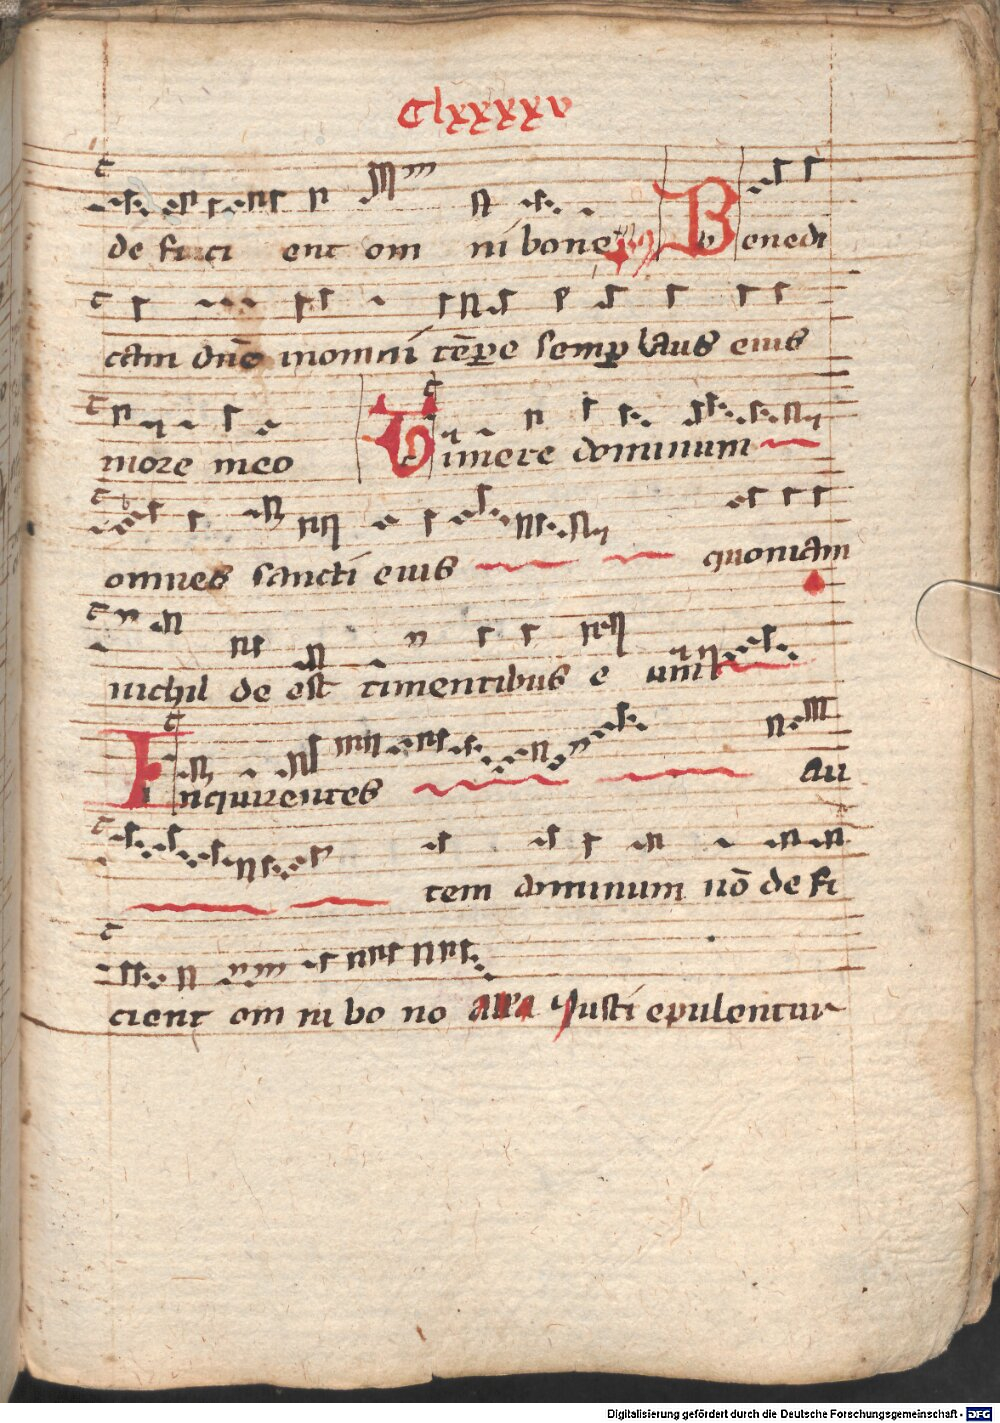 Clxxxxv
de fici ent om ni bone ps Benedi
cam dnē inomni tēpe semp laus eius
more meo Timete dominum
omnes sancti eius quoniam
nichil de est timentibus e um
Inquirentes au
tem dominum nō de fi
cient om ni bo no Alla Justi epulentur
Digitalisierung gefördert durch die Deutsche Forschungsgemeinschaft - DFG